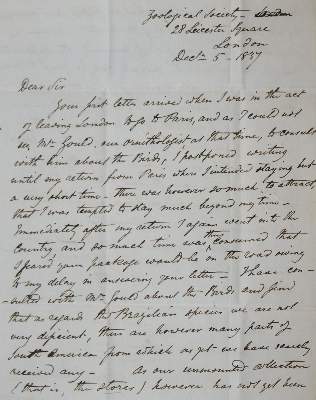 Zoological Society - London
28 Leicester Square
London
Decr. 5 - 1837
Dear Sir
Your first letter arrived when I was in the act
of leaving London to go to Paris, and as I could not
see Mr. Gould, our ornithologist at that time, to consult
with him about the Birds, I postponed writing
until my return from Paris where I intended staying but
a very short time - there was however so much to attract,
that I was tempted to stay much beyond my time -
Immediately after my return I again went into the
Country and so much time was thus consumed that
I feared your package would be on the road owing
to my delay in answering your letter - I have con-
sulted with Mr. Gould about the Birds and find
that as regards the Brazilian species we are not
very deficient, there are however many parts of
South America from which as yet we have scarcely
received any - As our unmounted collection
(that is, the stores) however has not yet been